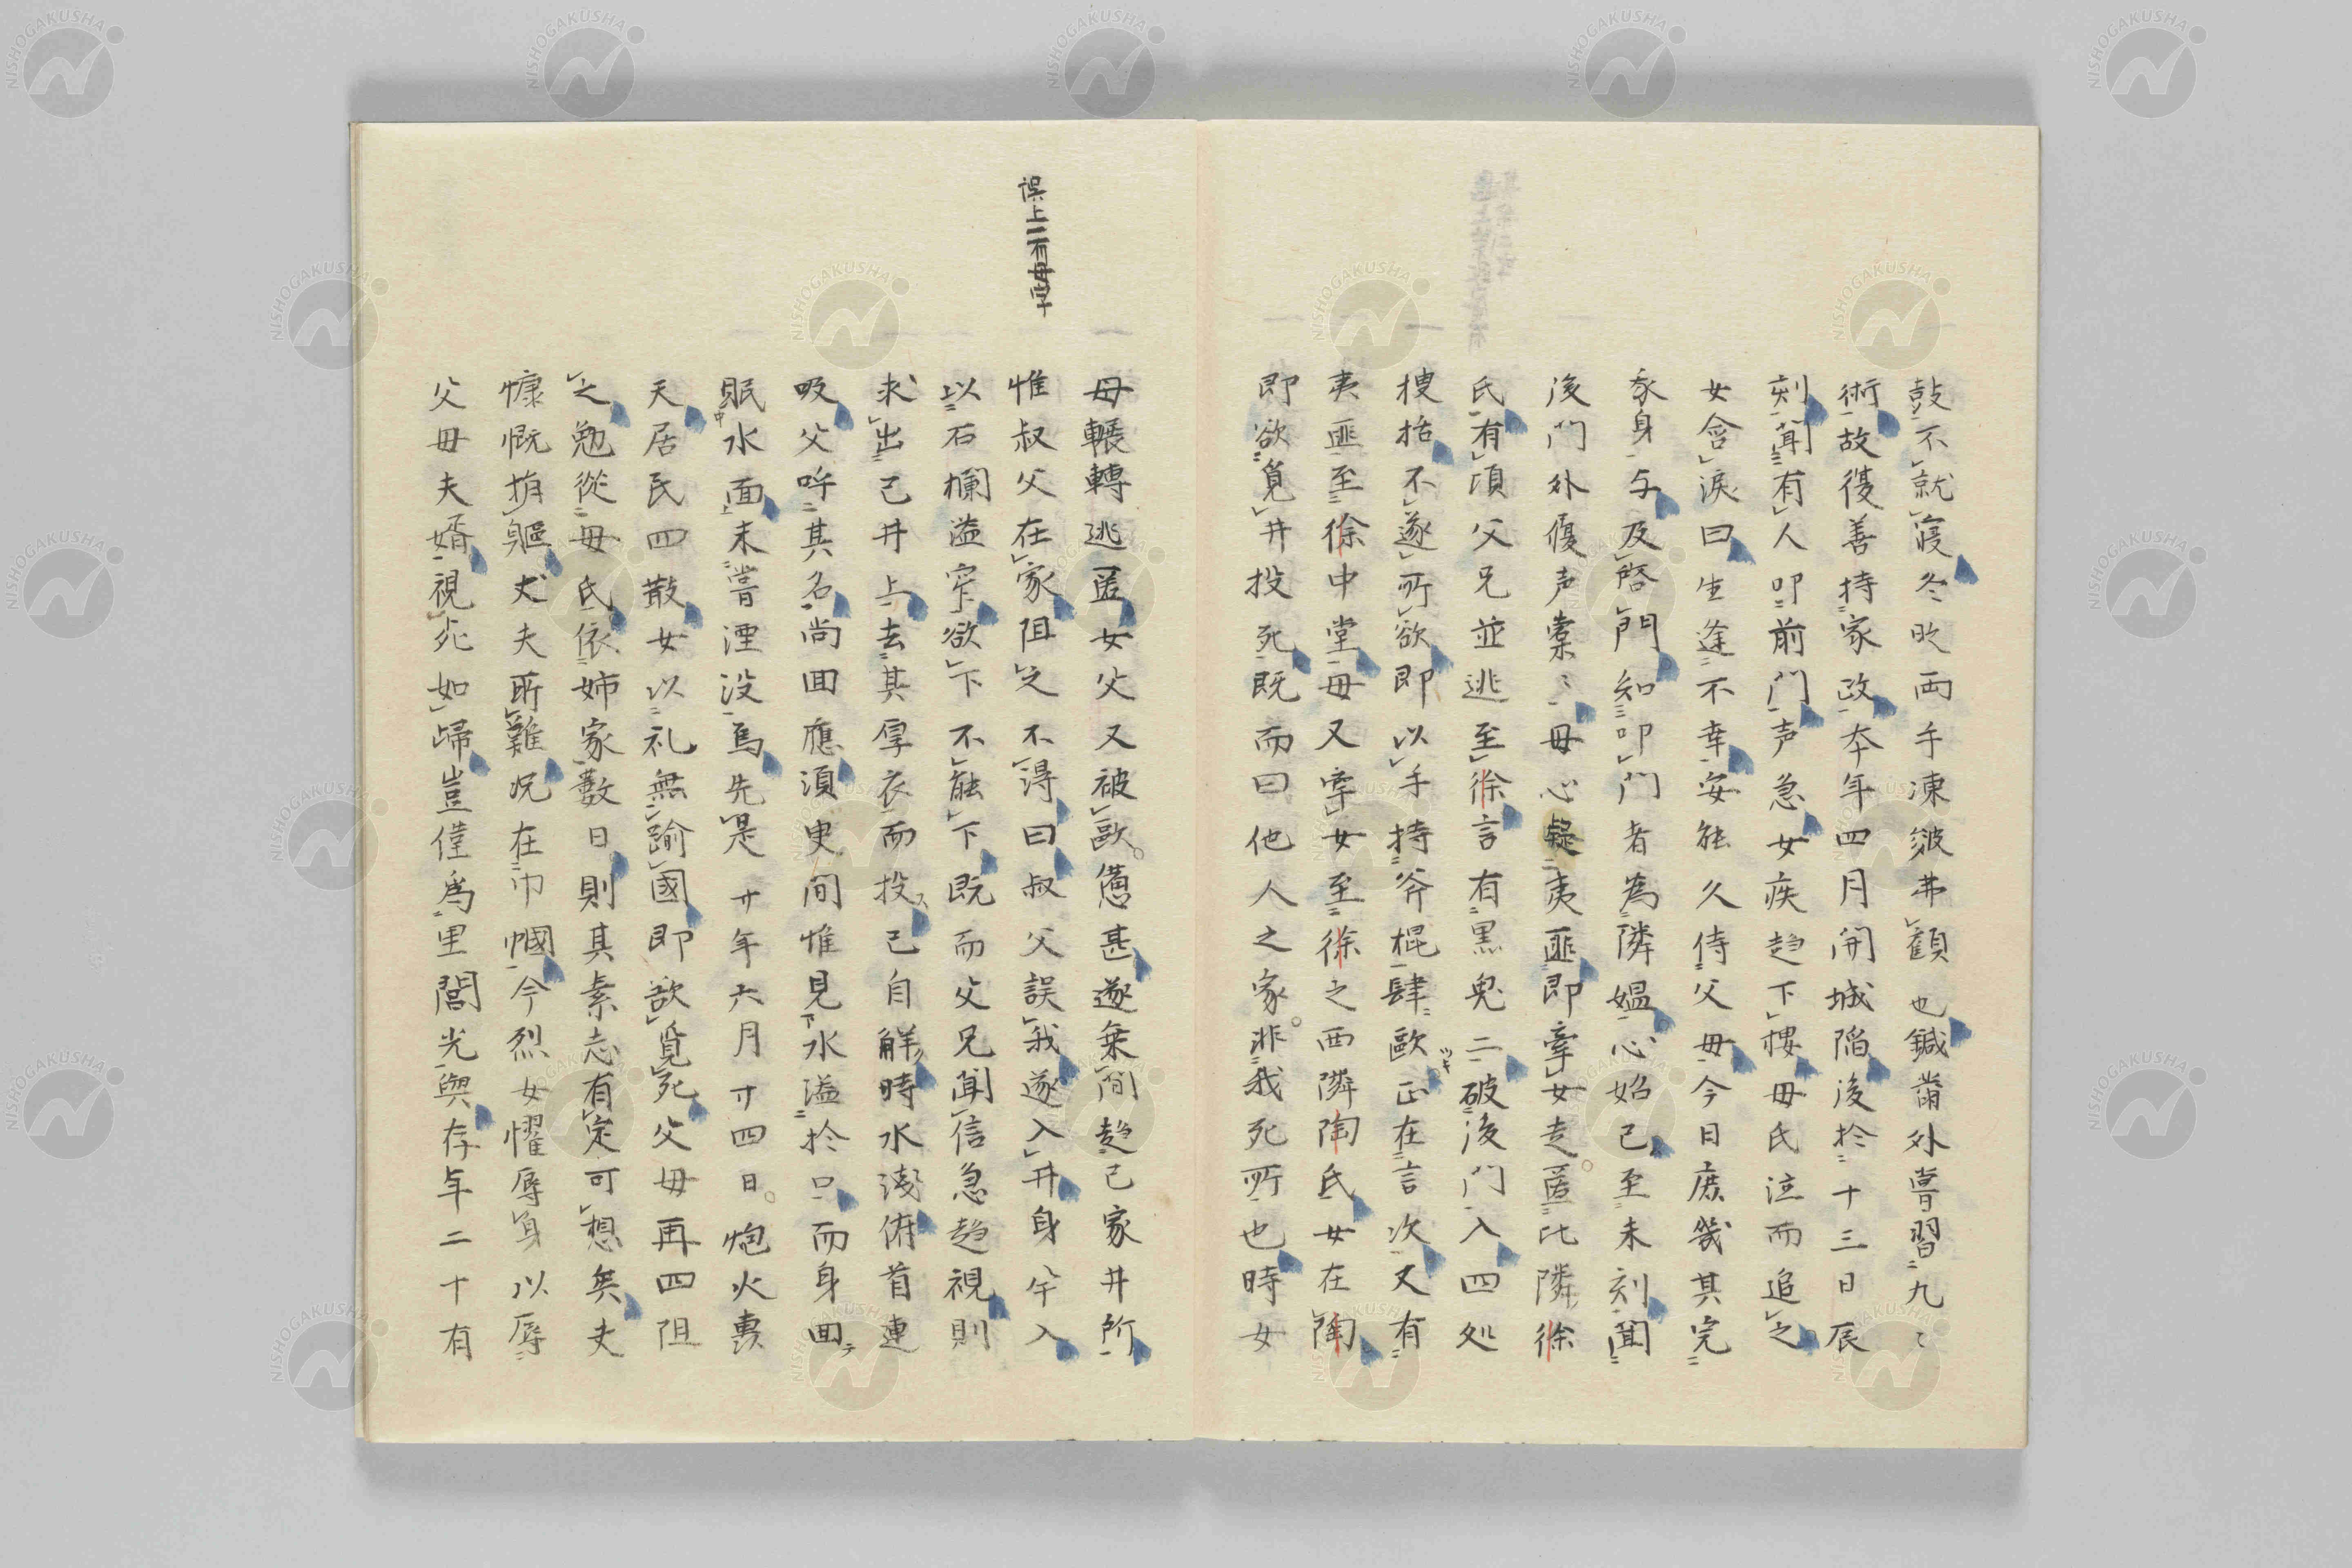 鼓不就寝冬吹両手凍皴弗顧也鍼黹外嘗習九〻
術故復善持家政本年四月開城陷後於十三日辰
刻聞有人叩前門声急女疾趋下樓母氏泣而追之
女含淚曰生逢不幸安能久侍父母今日庶幾其完
身与及啓門知叩門者為隣媼心始已至未刻聞
後門外優声橐〻母心疑夷匪即牽女走匿比隣徐
氏有頃父兄並逃至徐言有黒鬼二破後門入四処
搜括不遂所欲即以手持斧棍肆歐正在言次又有
夷匪至徐中堂母又牽女至徐之西隣陶氏女在陶
即欲覓井投死既而曰他人之家非我死所也時女
母輾轉逃匿女父又被歐憊甚遂乗間趋已家井所
惟叔父在家阻之不得曰叔父誤我遂入井身半入
以石欄溢窄欲下不能下既而父兄聞信急趋視則
求出已井上去其厚衣而投已自解時水淺俯首連
吸父呼其名尚回應須臾間惟見水溢於口而身回
眠水面未嘗湮没焉先是廿年六月廿四日炮火轟
天居民四散女以礼無踰國即欲覓死父母再四阻
之勉從母氏依姉家数日則其素志有定可想矣夫
慷慨捐軀丈夫所難况在巾幗今烈女懼辱身以辱
父母夫婿視死如歸豈僅為里閭光與存年二十有
誤上一有母字
NISHOGAKUSHA